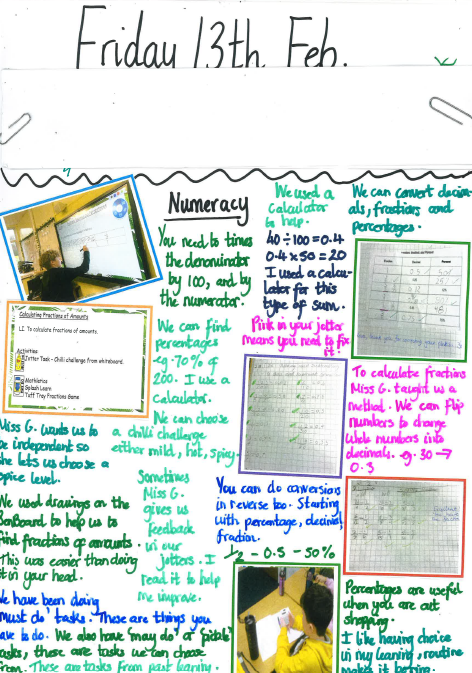 Friday 13th Feb.
Numeracy
You need to times
the denominator
by 100, and by
the numerator.
We used a
calculator
to help.
40 ÷ 100 = 0.4
0.4 x 50 = 20
I used a calcu-
lator for this
type of sum.
We can convert decim-
als, fractions and
percentages.
Calculating Fractions of Amounts
LI. To calculate fractions of amounts.
Activities
Jotter Task - Chilli challenge from whiteboard.
Mathletics
Splash Learn
Tuff Tray Fractions Game
We can find
percentages
eg. 70% of
200. I use a
calculator.
Pink in your jotter
means you need to fix
it!
To calculate fractions
Miss G. taught us a
method. We can flip
numbers to change
whole numbers into
decimals. eg. 30 →
0.3
Miss G. wants us to
be independent so
she lets us choose a
spice level.
We can choose
a chilli challenge
either mild, hot, spicy.
We used drawings on the
SenBoard to help us to
find fractions of amounts.
This was easier than doing
it in your head.
Sometimes
Miss G.
gives us
feedback
in our
jotters. I
read it to help
me improve.
You can do conversions
in reverse too. Starting
with percentage, decimal,
fraction.
1/2 - 0.5 - 50%
We have been doing
'must do' tasks. These are things you
have to do. We also have 'may do' or
tasks, these are tasks we can choose
from. These are tasks from past learning.
Percentages are useful
when you are out
shopping.
I like having choice
in my learning, routine
makes it boring.